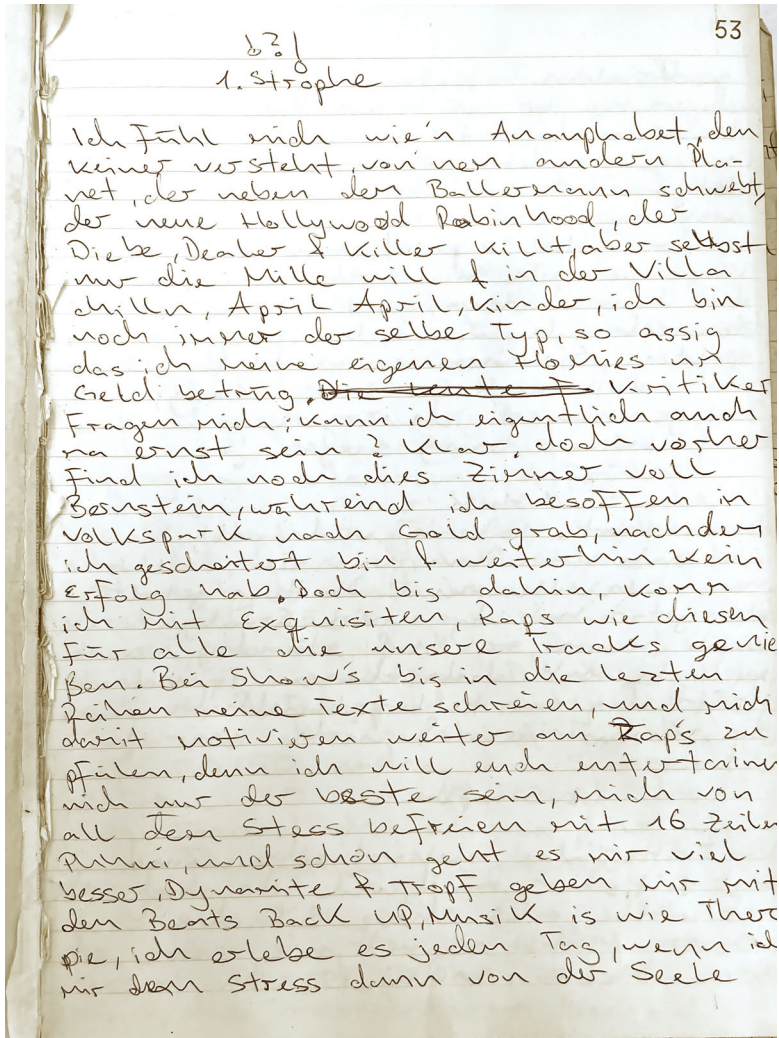 53
b?!
1. Strophe
Ich Fühl mich wie'n Ananphabet, den
keiner versteht, von nem andern Pla-
net, der neben dem Ballermann schwebt,
der neue Hollywood Robinhood, der
Diebe, Dealer & Killer killt, aber selbst
nur die Mille will & in der Villa
chilln, April April, Kinder, ich bin
noch immer der selbe Typ, so assig
das ich meine eigenen Homies um
Geld betrüg. Kritiker
Fragen mich: kann ich eigentlich auch
ma ernst sein? Klar, doch vorher
Find ich noch dies Zimmer voll
Bernstein, während ich besoffen in
Volkspark nach Gold grab, nachdem
ich gescheitert bin & weiterhin kein
Erfolg hab. Doch bis dahin, komm
ich mit Exquisiten, Raps wie diesen
Für alle die unsere Tracks genie
ßen. Bei Show's bis in die lezten
Reihen meine Texte schreien, und mich
damit motivieren weiter an Rap's zu
pfeilen, denn ich will euch entertainen
nich nur der beste sein, mich von
all dem Stress befreien mit 16 Zeilen
Phhuii, und schon geht es mir viel
besser, Dynamite & Tropf geben mir mit
den Beats Back UP, Musik is wie Thera
pie, ich erlebe es jeden Tag, wenn ich
mir dem Stress dann von der Seele